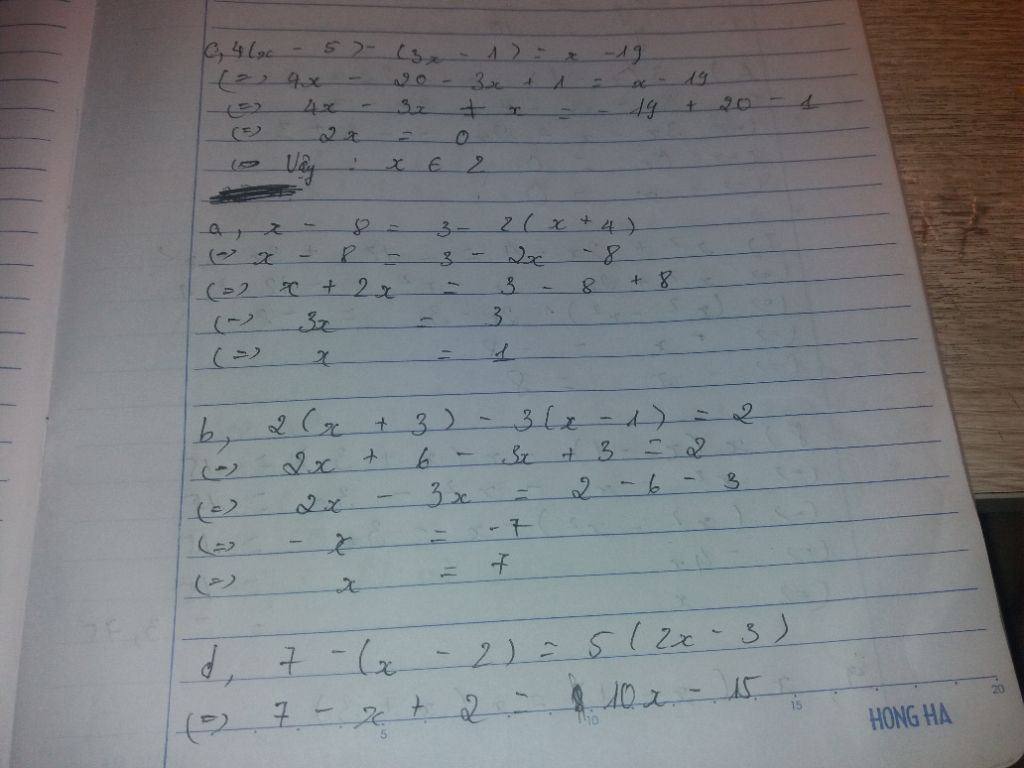 c, 4(x - 5) - (3x - 1) = x - 19
(=) 4x - 20 - 3x + 1 = x - 19
(=) 4x - 3x + x = - 19 + 20 - 1
(=) 2x = 0
(=) Vậy : x ∈ 2
a, x - 8 = 3 - 2(x + 4)
(=) x - 8 = 3 - 2x - 8
(=) x + 2x = 3 - 8 + 8
(=) 3x = 3
(=) x = 1
b, 2(x + 3) - 3(x - 1) = 2
(=) 2x + 6 - 3x + 3 = 2
(=) 2x - 3x = 2 - 6 - 3
(=) - x = - 7
(=) x = 7
d, 7 - (x - 2) = 5(2x - 3)
(=) 7 - x + 2 = 10x - 15
5 10 15 20
HONG HA